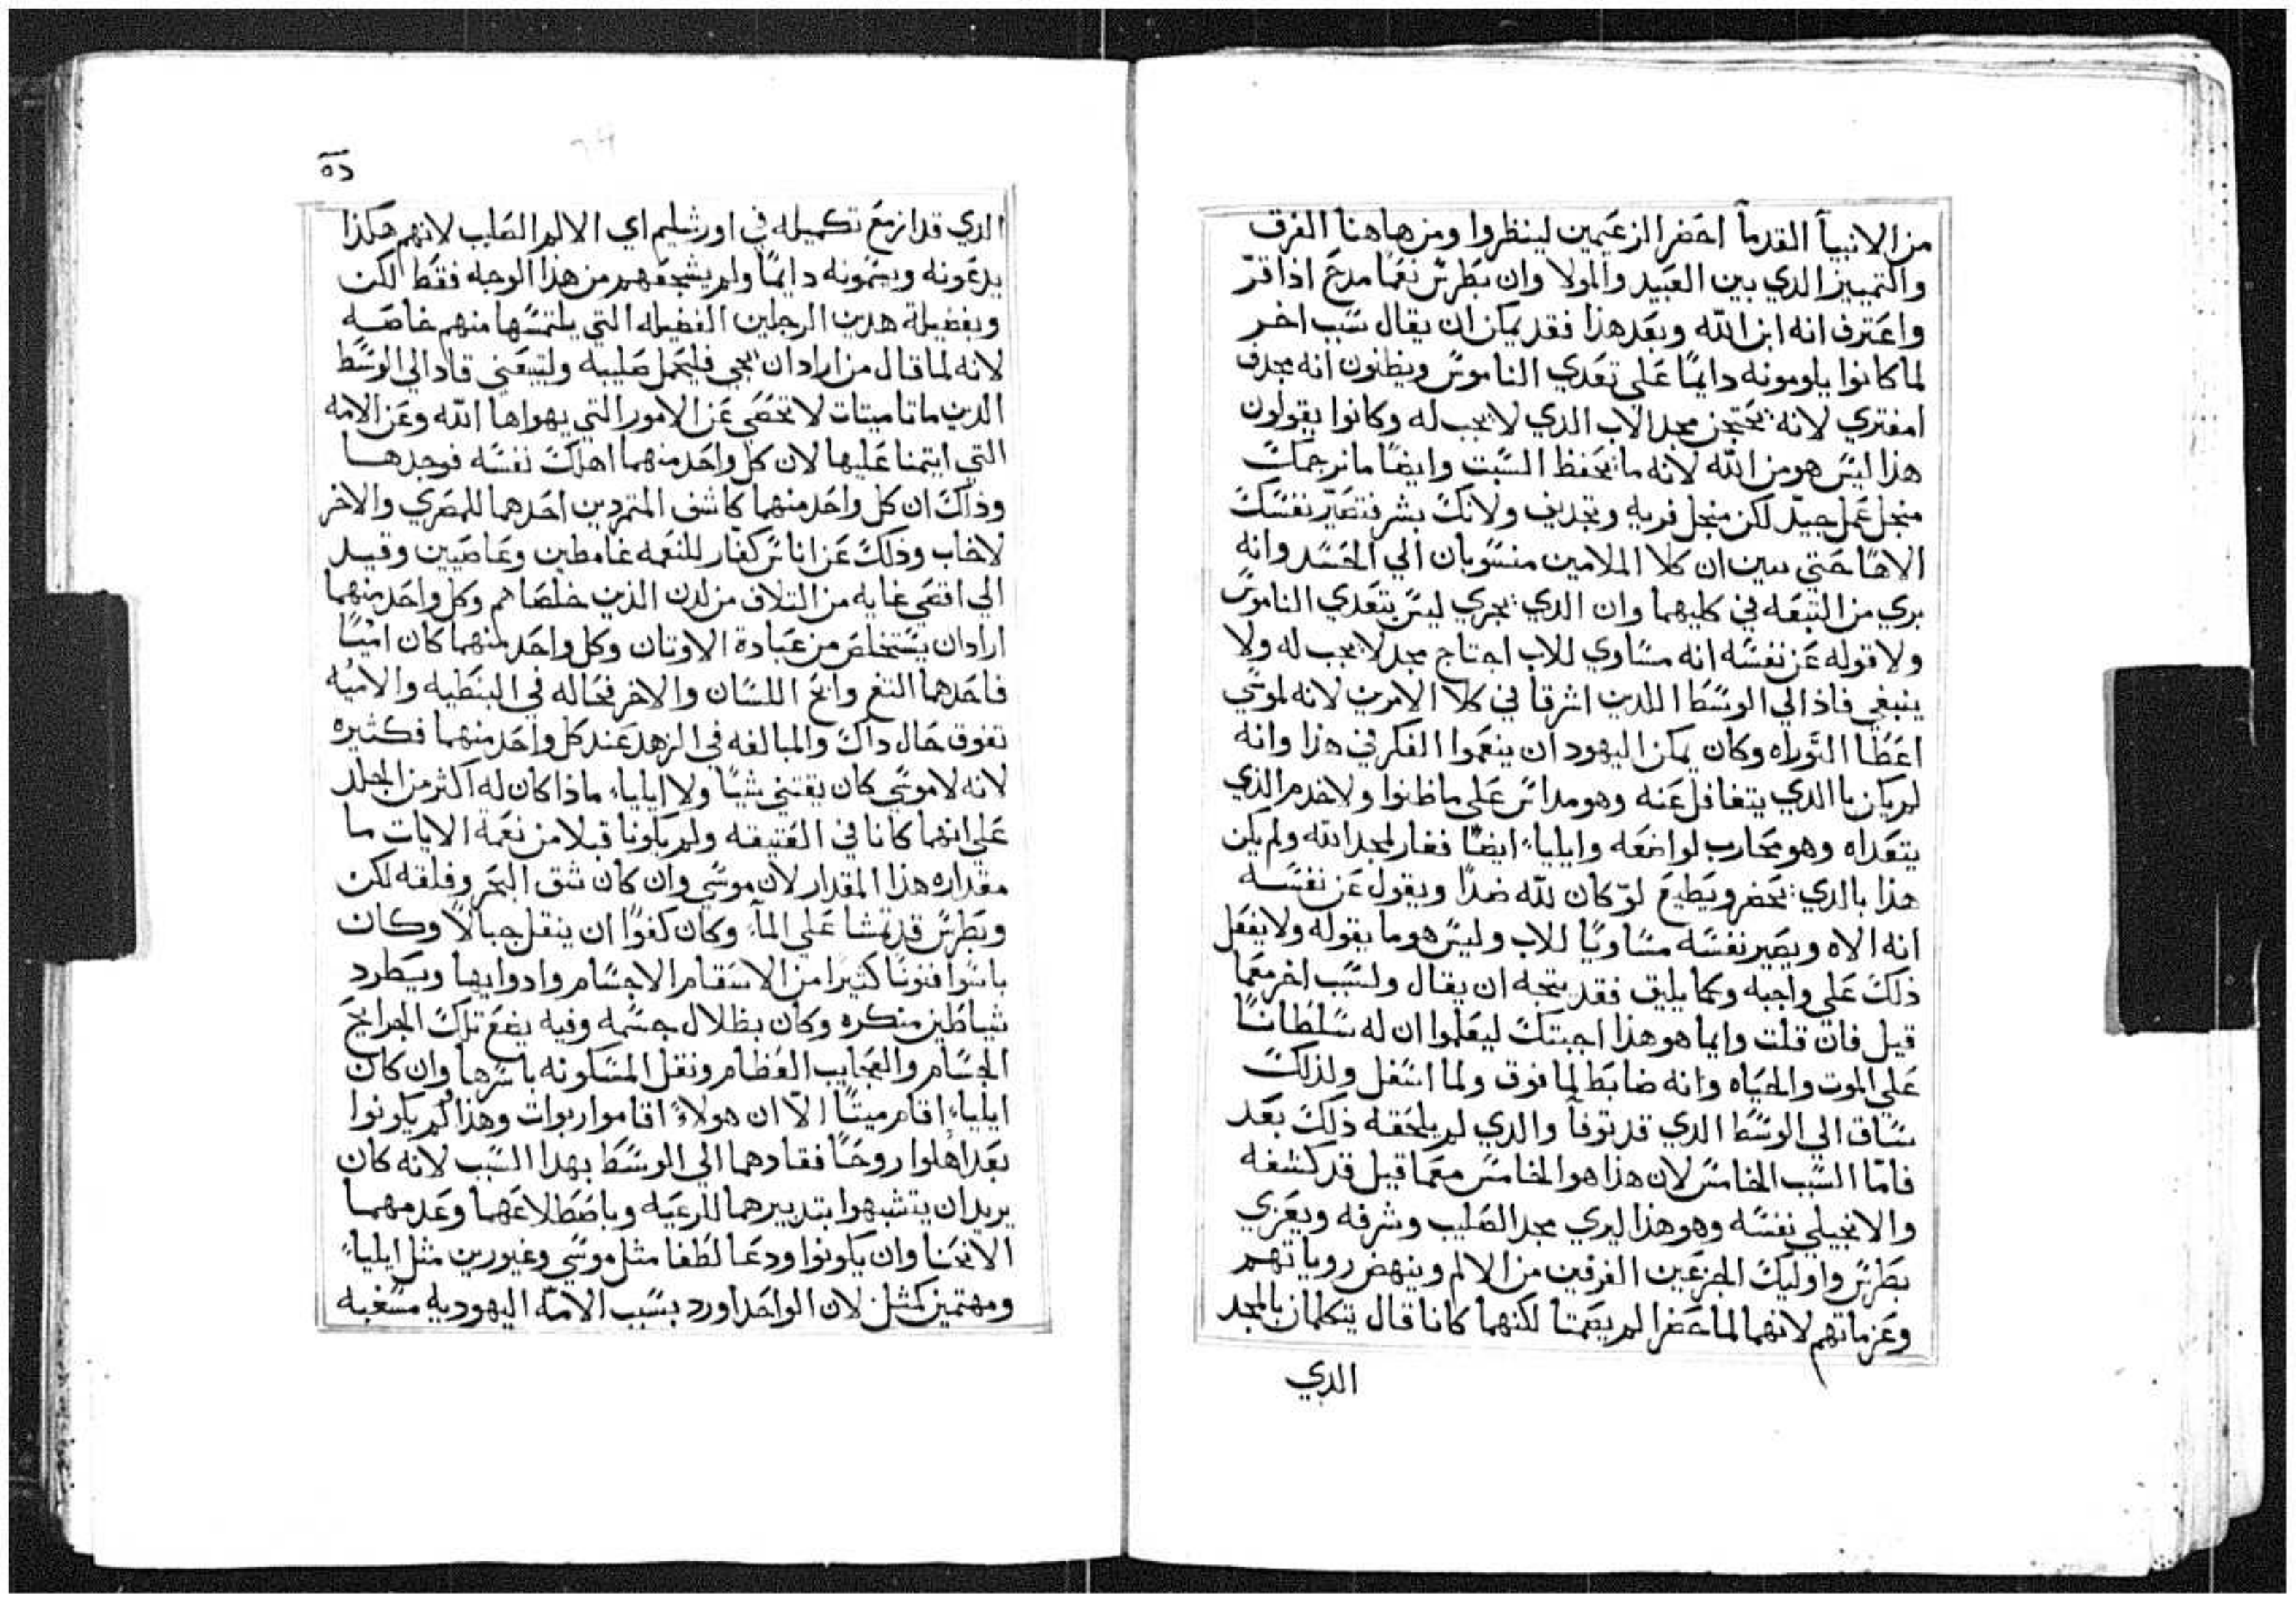 من الانبيآ القدمآ احضر الزعيمين لينظروا ومن هاهنا الفرق
والتمييز الدي بين العبيد والمولا وان بطرس نعما مدح اذا قرّ
واعترف انه ابن الله وبعد هذا فقد يمكن ان يقال سبب اخر
لما كانوا يلومونه دايمًا على تعدي الناموس ويظنون انه مجدف
امفتري لانه يحتجن مجد الاب الدي لا يجب له وكانوا يقولون
هذا ليس هو من الله لانه ما يحفظ السبت وايضًا ما نرجمك
منجل عمل جيّد لكن منجل فريه وتجديف ولانك بشر فتصيّر نفسك
الاهًا حتي يبين ان كلا الملامين منسوبان الي الحسد وانه
بري من التبعه في كليهما وان الدي يجري ليس بتعدي الناموس
ولا قوله عن نفسه انه مساوي للاب اجتاج مجد لا يجب له ولا
ينبغي فاذ الي الوسط اللدين اشرقا في كلا الامرين لانه لموسي
اعطا التوراه وكان يمكن اليهود ان ينعموا الفكر في هذا وانه
لم يكن باالدي يتغافل عنه وهو مداس على ما ظنوا ولا خدم الذي
يتعداه وهو محارب لواضعه وايلياء ايضًا فغار لمجد الله ولم يكن
هذا بالدي يحضر ويطيع لوّ كان لله ضدًا ويقول عن نفسه
انه الاه ويصير نفسه مساويًا للاب وليس هو ما يقوله ولا يفعل
ذلك على واجبه وكما يليق فقد يتجه ان يقال ولسبب اخر معما
قيل فان قلت وايما هو هذا اجبتك ليعلموا ان له سلطانًا
على الموت والحياه وانه ضابط لما فوق ولما اسفل ولذلك
ساق الي الوسط الدي قد توفآ والدي لم يلحقه ذلك بعد
فامّا السبب الخامس لان هذا هو الخامس معما قيل قد كشفه
والانجيلي نفسه وهو هذا ليري مجد الصليب وشرفه ويعزي
بطرس واوليك الجزعين الفرقين من الالم وينهض روياتهم
وعزماتهم لانهما لما حضرا لم يصمتا لكنهما كانا قال يتكلمان بالمجد
الدي
الدي قد ازمع تكميله في اورشليم اي الالم الصليب لانهم هكذا
يدعونه ويسمونه دايمًا ولم يشجعهم من هذا الوجه فقط لكن
وبفضيلة هدين الرجلين الفضيله التي يلتمسها منهم خاصه
لانه لما قال من اراد ان يجي فليحمل صليبه وليتبعني قاد الي الوسط
الدين ماتا ميتات لا تحصي عن الامور التي يهواها الله وعن الامه
التي ايتمنا عليها لان كل واحد منهما اهلك نفسه فوجدها
وذاك ان كل واحد منهما كاشف المتمردين احدهما للمصري والاخر
لاخاب وذلك عن اناس كفار للنعمه غامطين وعاصيين وقيد
الي اقصي غايه من التلاف من لدن الذين خلصاهم وكل واحد منهما
اراد ان يستخلص من عبادة الاوتان وكل واحد منهما كان اميًا
فاحدهما التغ وابح اللسان والاخر فحاله في النبطيه والاميه
تفوق حال داك والمبالغه في الزهد عند كل واحد منهما فكثيره
لانه لا موسي كان يقتني شيًا ولا ايلياء ماذا كان له اكثر من الجلد
على انهما كانا في العتيقه ولم يكونا قبلا من نعمة الايات ما
مقداره هذا المقدار لان موسي وان كان شق البحر وفلقه لكن
وبطرس قد تمشا على المآء وكان كفوًا ان ينقل جبالًا وكان
باسوا فنونًا كثيرًا من الاسقام الاجسام وادوايها ويطرد
شياطين منكره وكان بظلال جسمه وفيه يضع تلك الجرايح
الجسام والعجايب العظام ونقل المسكونه باسرها وان كان
ايلياء اقام ميتًا الّا ان هولاء اقاموا ربوات وهذا ولم يكونوا
بعد اهلوا روحًا فقادهما الي الوسط بهدا السبب لانه كان
يريد ان يتشبهوا بتدبيرهما للرعيه وباضطلاعهما وعدمهما
الانحنا وان يكونوا ودعا لطفا مثل موسي وغيورين مثل ايلياء
ومهتمين كمثل لان الواحد اورد بسبب الامّه اليهوديه مسغبه